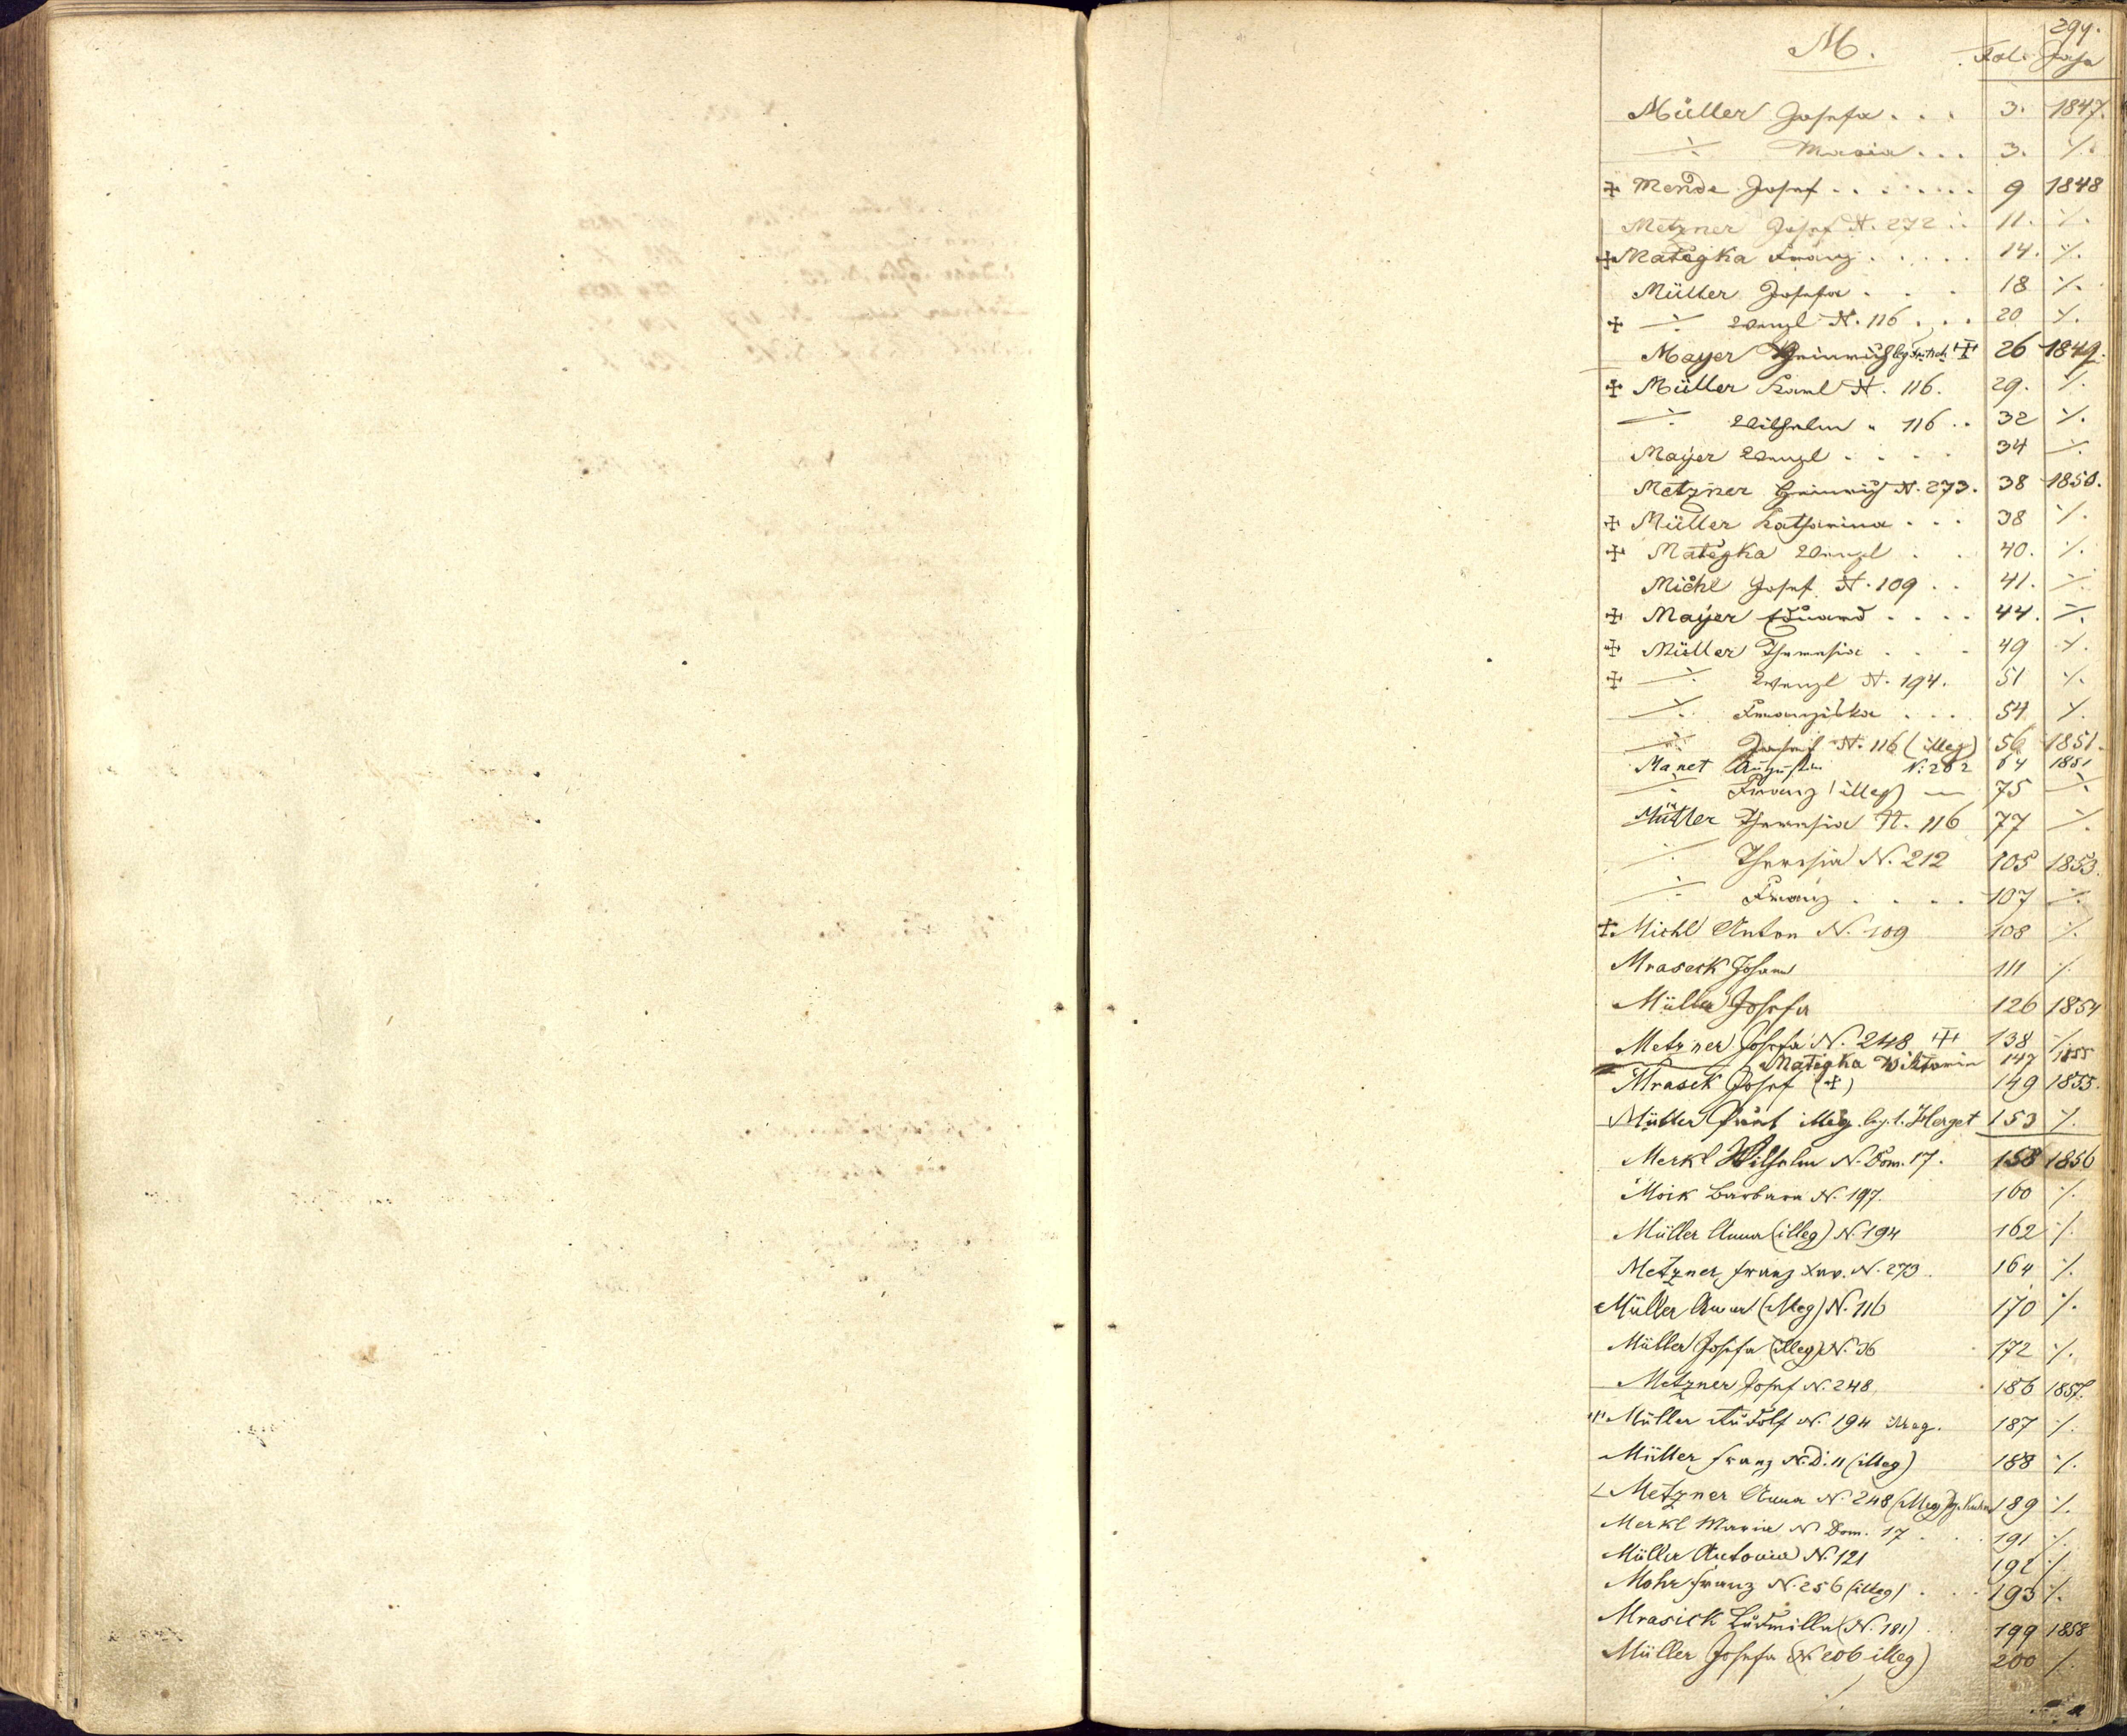 294.
M. Fol. Jahr
Müller Josefa . . . 3. 1847.
⁒ Maria . . . 3. ⁒
✠ Mende Josef . . . . . . . 9 1848
Metzner Josef N. 272 . . 11. ⁒
✠ Matègka Franz . . . . . 14. ⁒
Müller Josefa . . . 18 ⁒
✠ ⁒ Wenzl N. 116 . . . 20 ⁒
Mayer Heinrich ✠ 26 1849.
✠ Müller Karl N. 116. 29. ⁒
⁒ Wilhelm " 116 . . 32 ⁒
Mayer Wenzl . . . . 34 ⁒
Metzner Heinrich N. 273. 38 1850.
✠ Müller Katharina . . . 38 ⁒
✠ Matègka Wenzl . . 40. ⁒
Michl Josef N. 109 . . 41. ⁒
✠ Mayer Eduard . . . . 44. ⁒
✠ Müller Theresia . . . 49 ⁒
✠ ⁒ Wenzl N. 194. 51 ⁒
⁒ Franziska . . . 54 ⁒
⁒ Josef N. 116 (illeg) 56 1851.
Manet Augustin N: 262 64 1851
⁒ Franz (illeg) — 75 ⁒
Müller Theresia N. 116 77 ⁒
⁒ Theresia N. 212 105 1853.
⁒ Franz . . . . 107 ⁒
✠ Michl Anton N. 109 108 ⁒
Mraseck Johann 111 ⁒
Müller Josefa 126 1854
Metzner Josefa N. 248 ✠ 138 ⁒
Matègka Viktorin 147 1855
Mrasek Josef (✠) 149 1855.
Müller illeg. leg. t. Herget 153 ⁒
Merkl Wilhelm N. Dom. 17. 158 1856
Moik Barbara N. 197. 160 ⁒
Müller Anna (illeg) N. 194 162 ⁒
Metzner Franz Xav. N. 273. 164 ⁒
Müller Anna (illeg) N. 116 170 ⁒
Müller Josefa (illeg) N. 36 172 ⁒
Metzner Josef N. 248. 186 1857.
✠ Müller Rudolf N. 194 illeg. 187 ⁒
Müller Franz N. D. 11 (illeg) 188 ⁒
Metzner Anna N. 248 (illeg) 189 ⁒
Merkl Maria N Dom. 17 . . . 191 ⁒
Müller Antonia N. 121 192 ⁒
Mohr Franz N. 256 (illeg) . . . 193 ⁒
Mrasick Ludmilla (N. 181) . . 199 1858
Müller Josefa (N 206 illeg) 200 ⁒